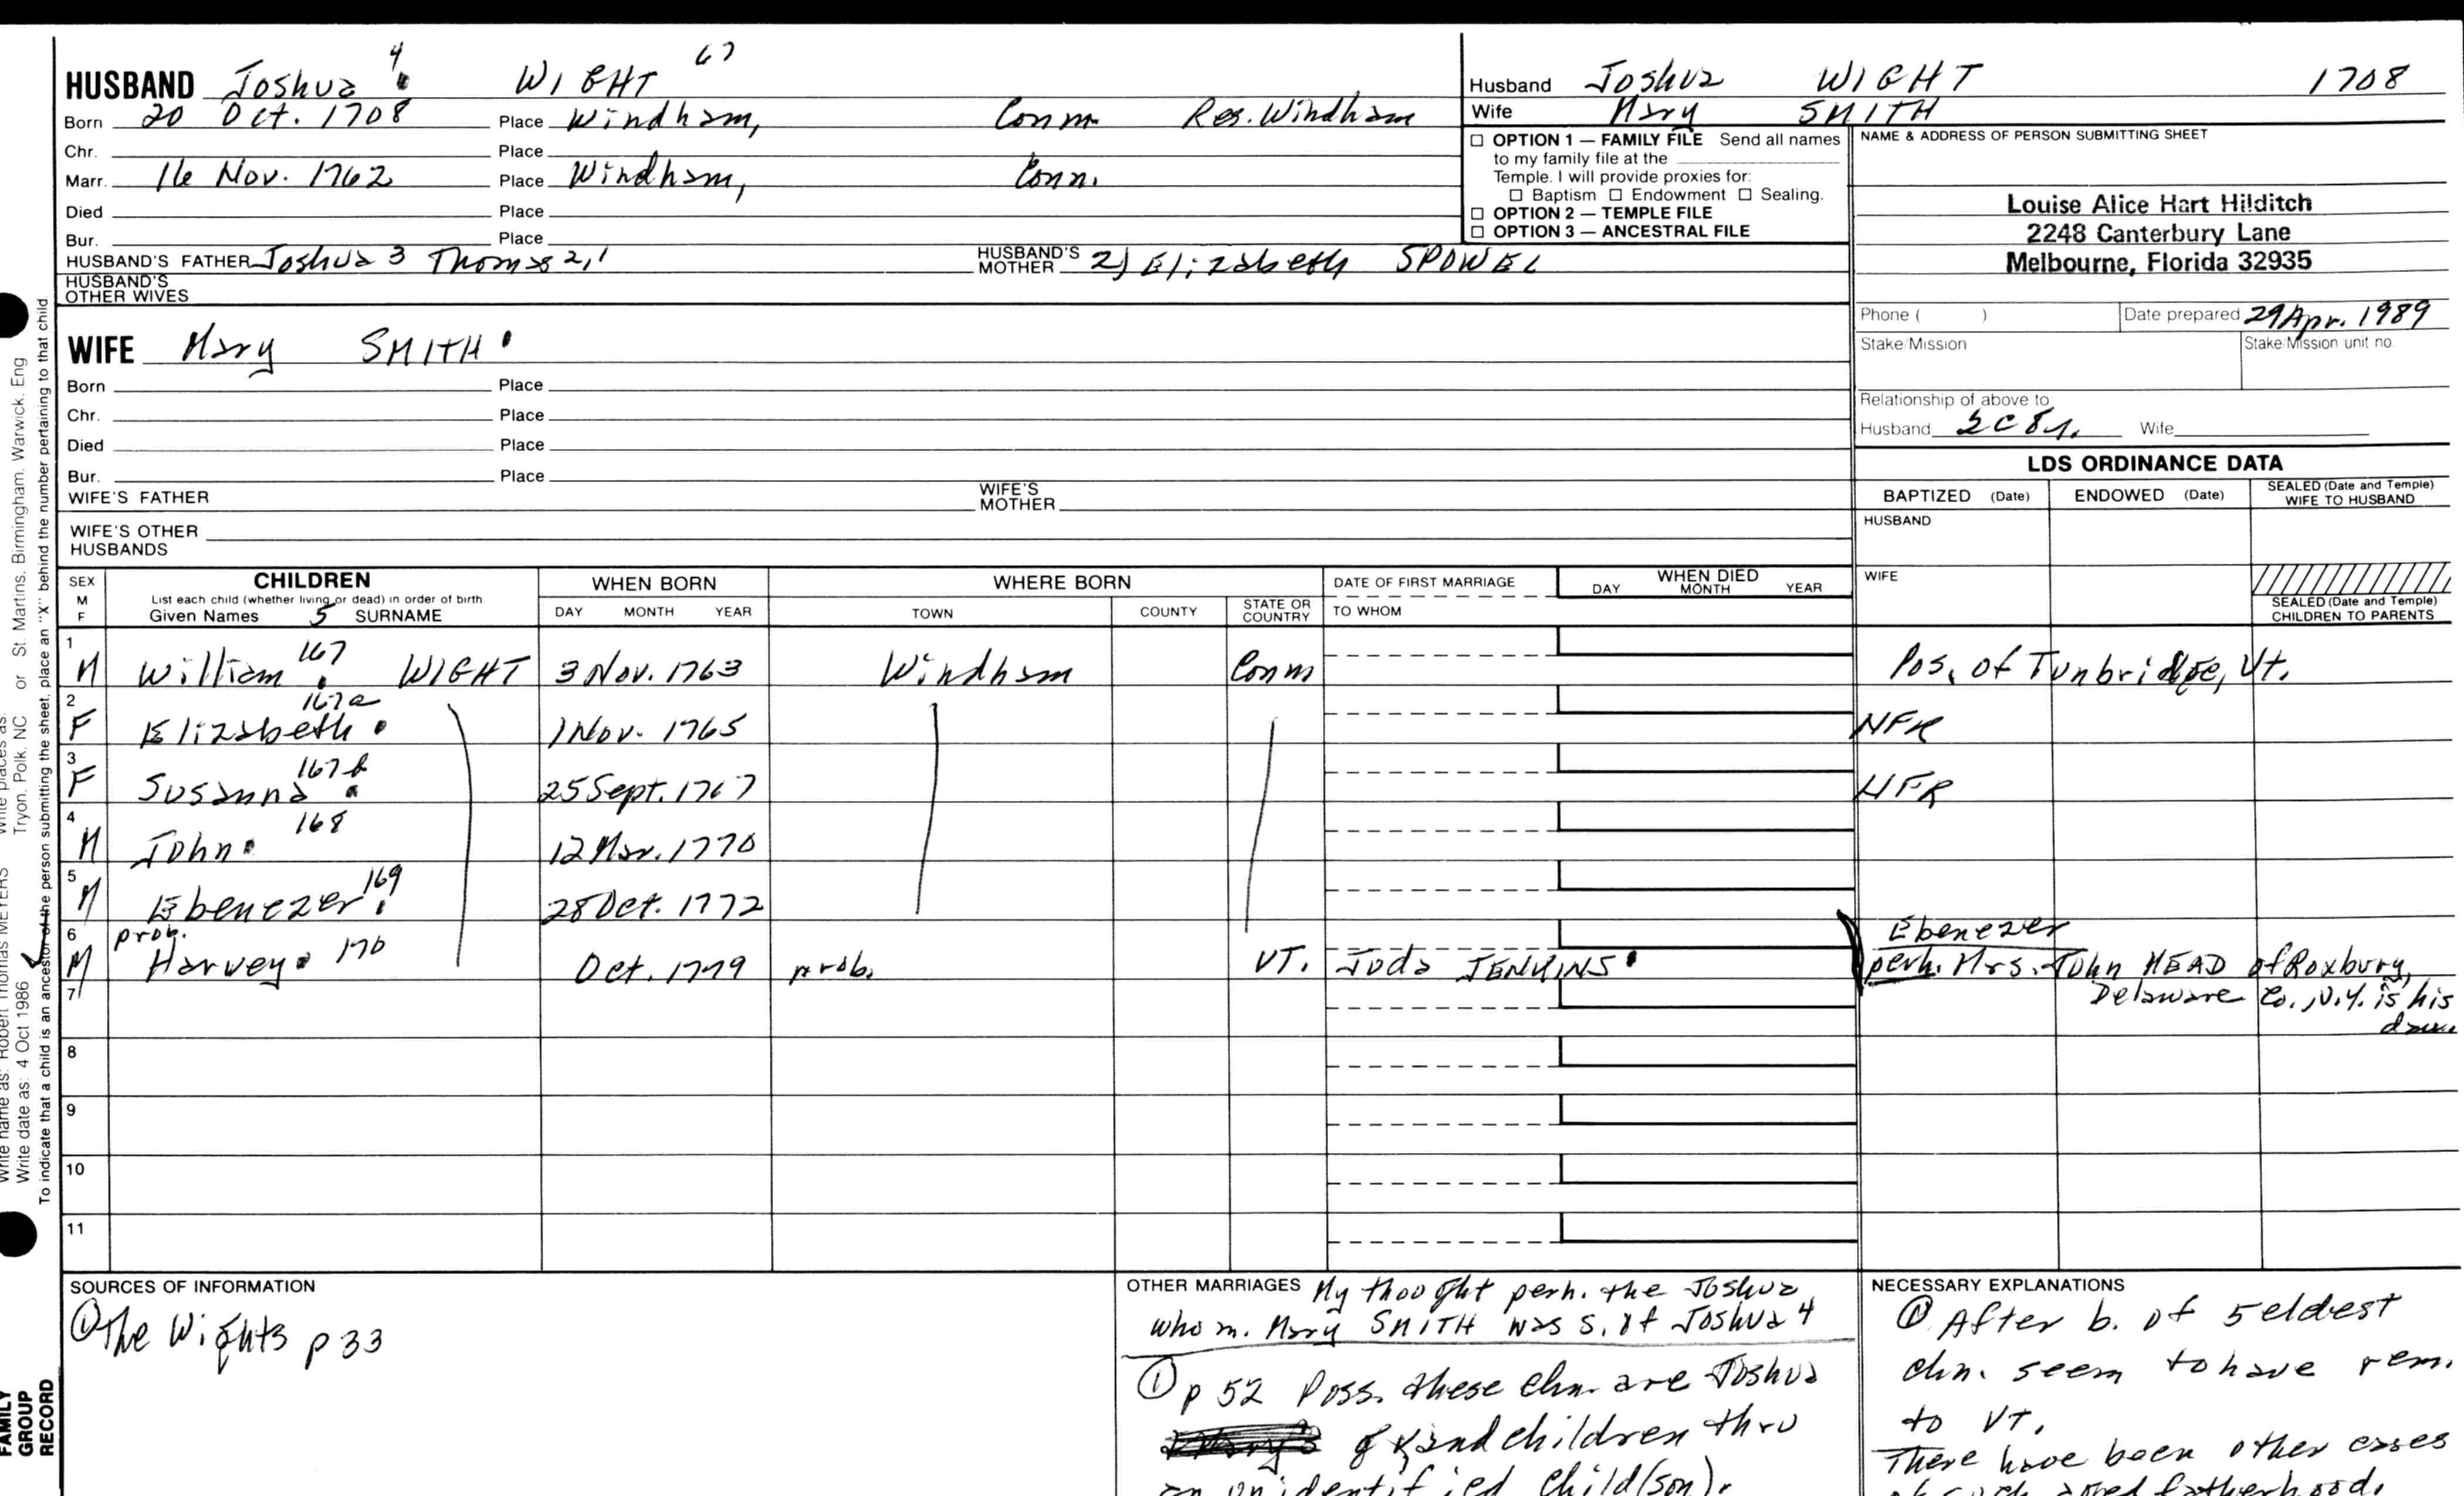 HUSBAND Joshua 4 WIGHT 67
Born 20 Oct. 1708 Place Windham, Conn Res. Windham
Chr. Place
Marr. 16 Nov. 1762 Place Windham, Conn.
Died Place
Bur. Place
HUSBAND'S FATHER Joshua 3 Thomas 2,1 HUSBAND'S MOTHER 2) Elizabeth SPOWEL
HUSBAND'S OTHER WIVES
Husband Joshua WIGHT 1708
Wife Mary SMITH
☐ OPTION 1 — FAMILY FILE Send all names
to my family file at the
Temple. I will provide proxies for:
☐ Baptism ☐ Endowment ☐ Sealing.
☐ OPTION 2 — TEMPLE FILE
☐ OPTION 3 — ANCESTRAL FILE
NAME & ADDRESS OF PERSON SUBMITTING SHEET
Louise Alice Hart Hilditch
2248 Canterbury Lane
Melbourne, Florida 32935
Phone ( ) Date prepared 29 Apr. 1989
Stake/Mission Stake/Mission unit no.
Relationship of above to
Husband 2C8r. Wife
WIFE Mary SMITH
Born Place
Chr. Place
Died Place
Bur. Place
WIFE'S FATHER WIFE'S MOTHER
WIFE'S OTHER HUSBANDS
LDS ORDINANCE DATA
BAPTIZED (Date) ENDOWED (Date) SEALED (Date and Temple) WIFE TO HUSBAND
HUSBAND
WIFE
SEALED (Date and Temple) CHILDREN TO PARENTS
SEX M F CHILDREN WHEN BORN WHERE BORN DATE OF FIRST MARRIAGE WHEN DIED
List each child (whether living or dead) in order of birth
Given Names 5 SURNAME DAY MONTH YEAR TOWN COUNTY STATE OR COUNTRY TO WHOM DAY MONTH YEAR
1 M William 167 WIGHT 3 Nov. 1763 Windham Conn Pos. of Tunbridge, Vt.
2 F Elizabeth 167a 1 Nov. 1765 NFR
3 F Susanna 167b 25 Sept. 1767 NFR
4 M John 168 12 Mar. 1770
5 M Ebenezer 169 28 Oct. 1772
6 M prob. Harvey 170 Oct. 1779 prob. VT. Juda JENKINS
Ebenezer
perh. Mrs. John HEAD of Roxbury,
Delaware Co., N.Y. is his
7
8
9
10
11
SOURCES OF INFORMATION
① The Wights p 33
OTHER MARRIAGES My thought perh. the Joshua
who m. Mary SMITH was s. of Joshua 4
① p 52 Poss. these chn. are Joshua
grandchildren thru
an unidentified child (son).
NECESSARY EXPLANATIONS
① After b. of 5 eldest
chn. seem to have rem.
to VT.
There have been other cases
of such aged fatherhood.
or St. Martins, Birmingham, Warwick, Eng
Tryon, Polk, NC
Write name as: Robert Thomas MEYERS Write places as:
Write date as: 4 Oct 1986
To indicate that a child is an ancestor of the person submitting the sheet, place an "X" behind the number pertaining to that child
FAMILY
GROUP
RECORD